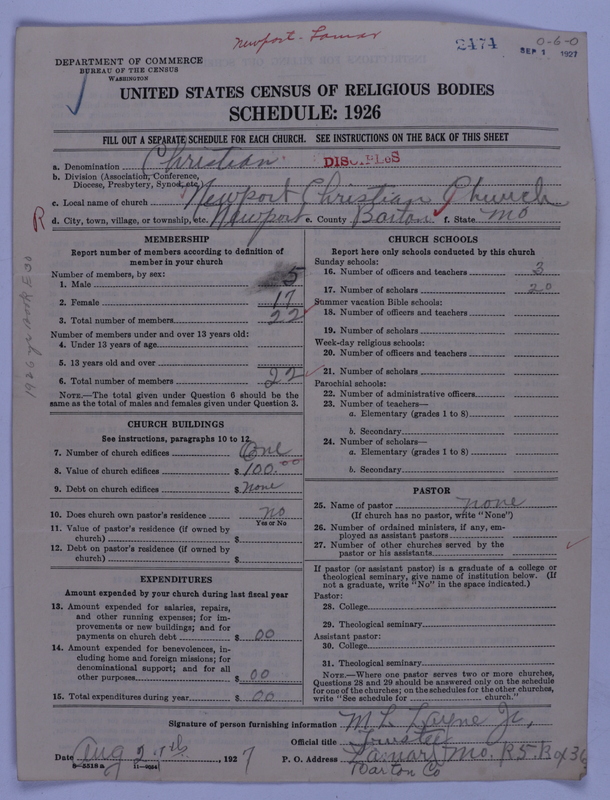 Newport - Lamar
2474
0-6-0
SEP 1 1927
DEPARTMENT OF COMMERCE
BUREAU OF THE CENSUS
WASHINGTON
UNITED STATES CENSUS OF RELIGIOUS BODIES
SCHEDULE: 1926
FILL OUT A SEPARATE SCHEDULE FOR EACH CHURCH. SEE INSTRUCTIONS ON THE BACK OF THIS SHEET
a. Denomination Christian DISCIPLES
b. Division (Association, Conference, Diocese, Presbytery, Synod, etc.
c. Local name of church Newport Christian Church
R d. City, town, village, or township, etc. Newport e. County Barton f. State Mo
MEMBERSHIP
Report number of members according to definition of
member in your church
Number of members, by sex:
1. Male 5
2. Female 17
3. Total number of members 22
Number of members under and over 13 years old:
4. Under 13 years of age
5. 13 years old and over
6. Total number of members 22
NOTE.—The total given under Question 6 should be the
same as the total of males and females given under Question 3.
CHURCH BUILDINGS
See instructions, paragraphs 10 to 12
7. Number of church edifices One
8. Value of church edifices $ 100.00
9. Debt on church edifices $ None
10. Does church own pastor's residence no
Yes or No
11. Value of pastor's residence (if owned by
church) $
12. Debt on pastor's residence (if owned by
church) $
EXPENDITURES
Amount expended by your church during last fiscal year
13. Amount expended for salaries, repairs,
and other running expenses; for im-
provements or new buildings; and for
payments on church debt $ 00
14. Amount expended for benevolences, in-
cluding home and foreign missions; for
denominational support; and for all
other purposes $ 00
15. Total expenditures during year $ 00
CHURCH SCHOOLS
Report here only schools conducted by this church
Sunday schools:
16. Number of officers and teachers 3
17. Number of scholars 20
Summer vacation Bible schools:
18. Number of officers and teachers
19. Number of scholars
Week-day religious schools:
20. Number of officers and teachers
21. Number of scholars
Parochial schools:
22. Number of administrative officers
23. Number of teachers—
a. Elementary (grades 1 to 8)
b. Secondary
24. Number of scholars—
a. Elementary (grades 1 to 8)
b. Secondary
PASTOR
25. Name of pastor none
(If church has no pastor, write "None")
26. Number of ordained ministers, if any, em-
ployed as assistant pastors
27. Number of other churches served by the
pastor or his assistants
If pastor (or assistant pastor) is a graduate of a college or
theological seminary, give name of institution below. (If
not a graduate, write "No" in the space indicated.)
Pastor:
28. College
29. Theological seminary
Assistant pastor:
30. College
31. Theological seminary
NOTE.—Where one pastor serves two or more churches,
Questions 28 and 29 should be answered only on the schedule
for one of the churches; on the schedules for the other churches,
write "See schedule for church."
Signature of person furnishing information M L Layne Jr,
Official title Trustee
Date Aug 27th, 1927 P. O. Address Lamar, Mo. R5. Box 36
Barton Co
8—5318a 11—9584